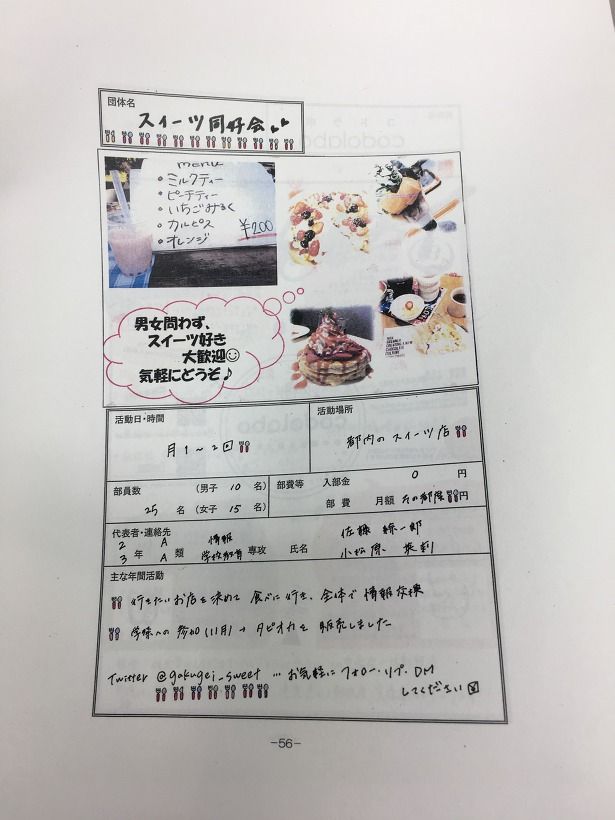 団体名
スイーツ同好会
MENU
・ミルクティー
・ピーチティー
・いちごみるく
・カルピス
・オレンジ
¥200
男女問わず、
スイーツ好き
大歓迎☺
気軽にどうぞ♪
活動日・時間
月1〜2回
活動場所
都内のスイーツ店
部員数 (男子 10 名)
25 名 (女子 15 名)
部費等 入部金 0 円
部 費 月額 その都度 円
代表者・連絡先
2 A 情報
3 年 A 類 学校教育 専攻 氏名
佐藤 一郎
小松原
主な年間活動
行きたいお店を決めて 食べに行き、全体で 情報交換
学祭への参加(11月)→タピオカを販売しました
Twitter @gakugei_sweet … お気軽に フォロー・リプ・DM
してください
-56-